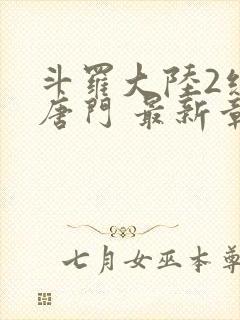 斗羅大陸2
唐門 最新
七月女巫本尊